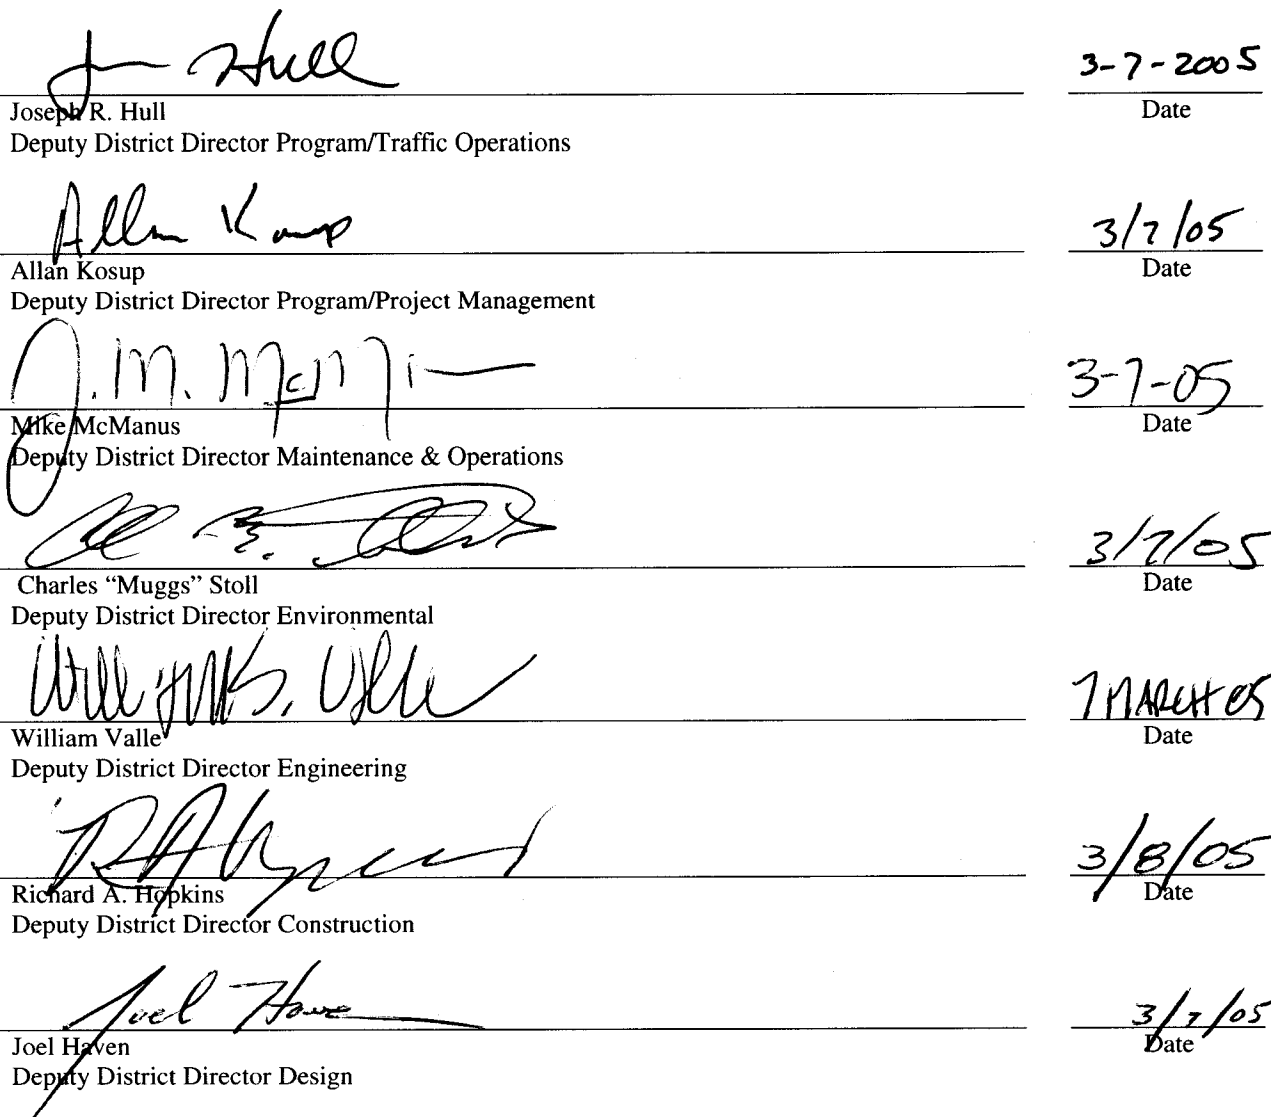 J Hull 3-7-2005
Joseph R. Hull Date
Deputy District Director Program/Traffic Operations
Allan Kosup 3/7/05
Allan Kosup Date
Deputy District Director Program/Project Management
J. M. McM 3-7-05
Mike McManus Date
Deputy District Director Maintenance & Operations
3/7/05
Charles “Muggs” Stoll Date
Deputy District Director Environmental
William Valle 7 MARCH 05
William Valle Date
Deputy District Director Engineering
3/8/05
Richard A. Hopkins Date
Deputy District Director Construction
Joel Haven 3/7/05
Joel Haven Date
Deputy District Director Design